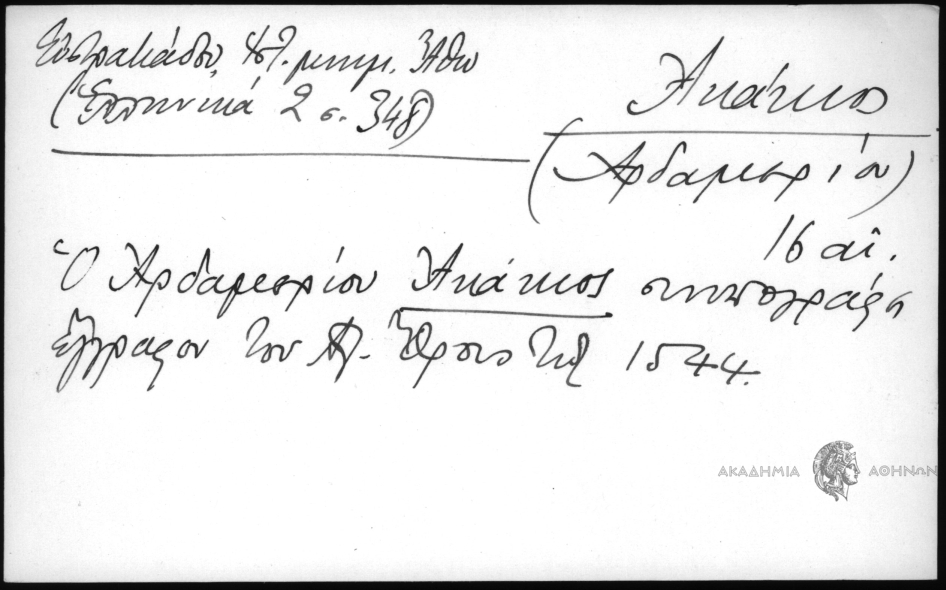 Εὐστρατιάδου, Ἱστ. μνημ. Ἄθω
(Ἑλληνικά 2 σ. 348)
Ἀκάκιος
(Ἀρδαμερίου)
16 αἰ.
Ὁ Ἀρδαμερίου Ἀκάκιος συνυπογράφει
ἔγγραφον τοῦ Ἁγ. Ὄρους τῷ 1544.
ΑΚΑΔΗΜΙΑ ΑΘΗΝΩΝ